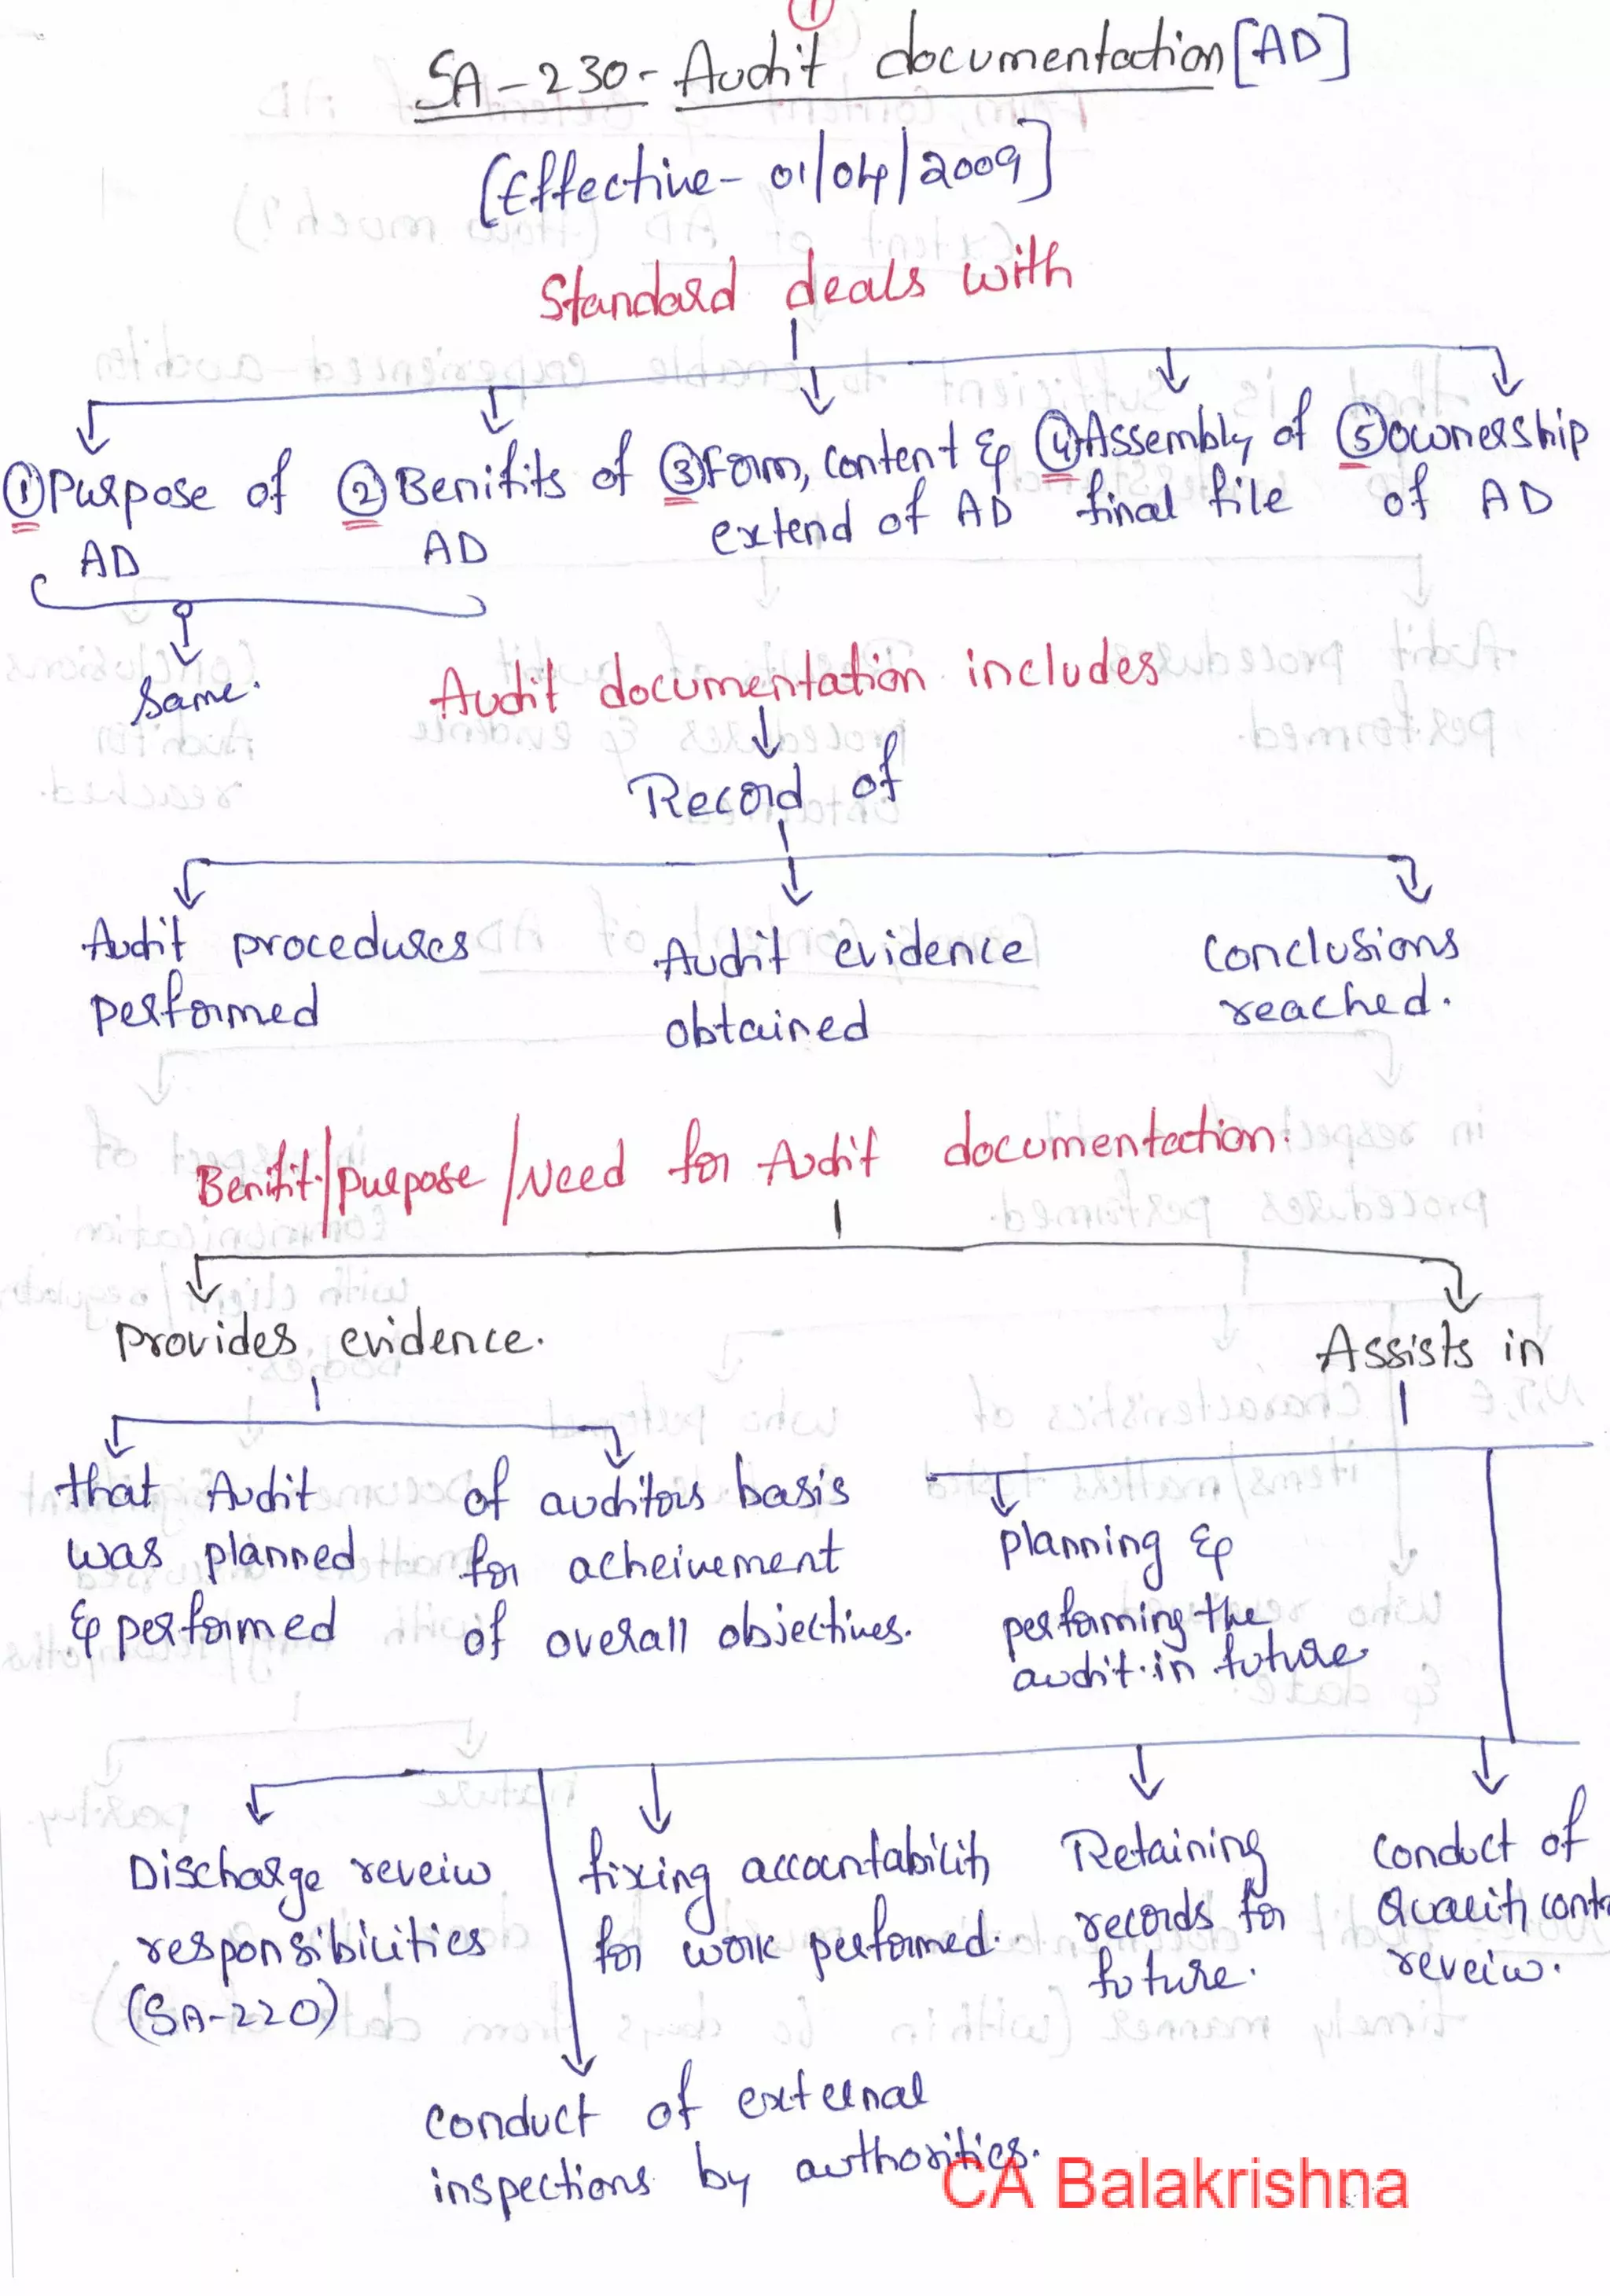 1
SA-230- Audit documentation [AD]
[Effective- 01/04/2009]
Standard deals with
① Purpose of AD
② Benifits of AD
③ Form, content & extend of AD
④ Assembly of final file
⑤ ownership of AD
Same.
Audit documentation includes
Record of
Audit procedures performed
Audit evidence obtained
Conclusions reached.
Benifit/purpose/Need for Audit documentation.
Provides evidence.
Assists in
that Audit
was planned
& performed
of auditors basis
for acheivement
of overall objectives.
planning &
performing the
audit in future
Discharge reveiw
responsibilities
(SA-220)
fixing accountability
for work performed.
Retaining
records for
future.
conduct of
Quality contr
reveiw.
conduct of external
inspections by authorities.
CA Balakrishna